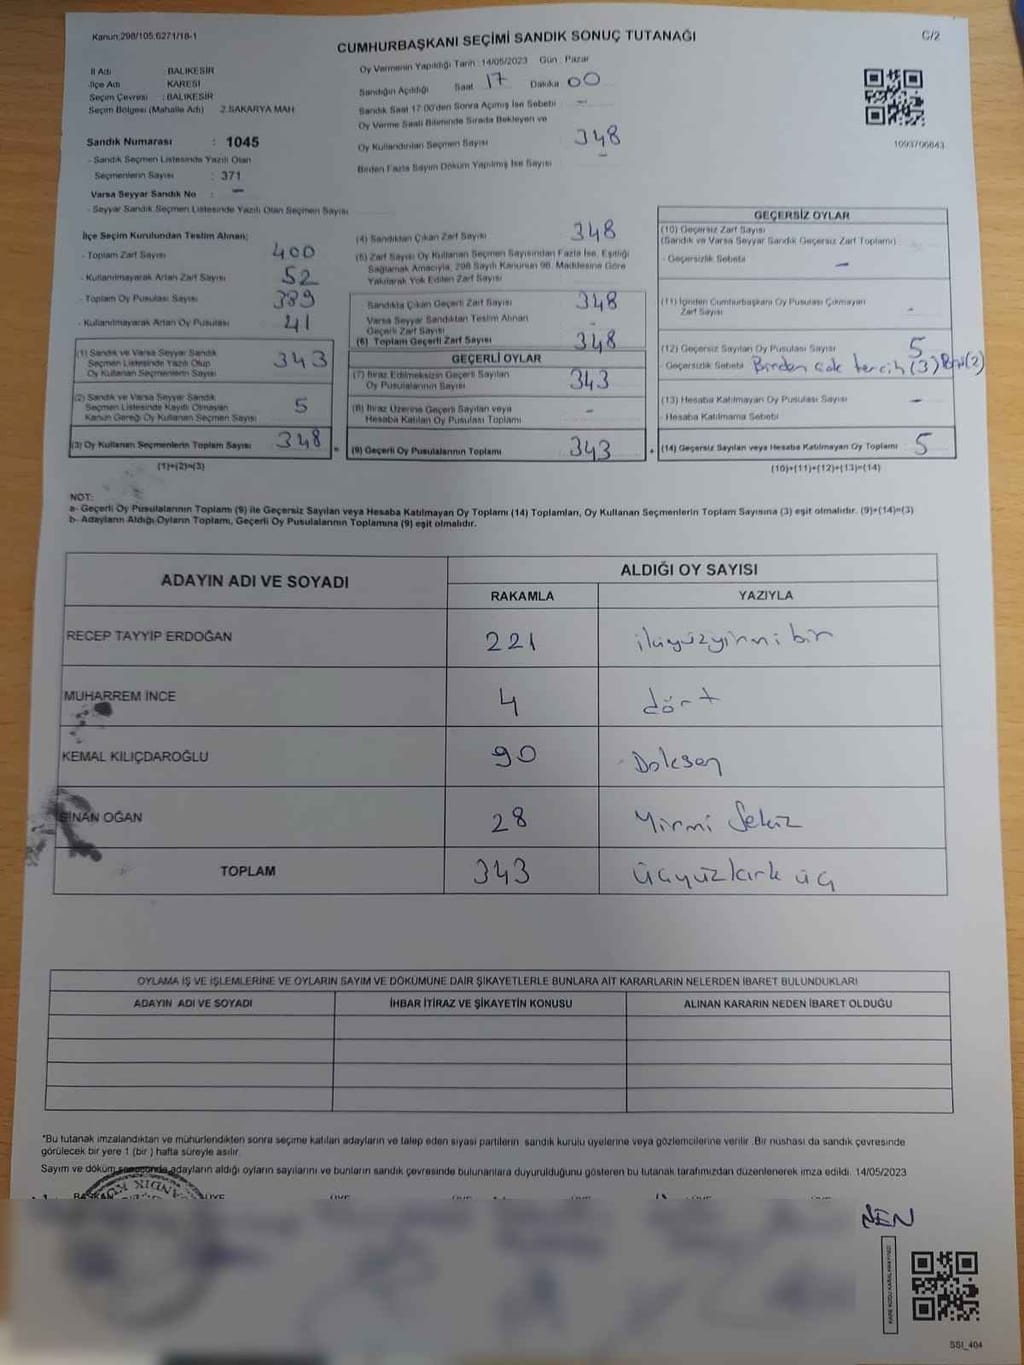 Kanun:298/105,6271/18-1
CUMHURBAŞKANI SEÇİMİ SANDIK SONUÇ TUTANAĞI
C/2
İl Adı : BALIKESİR
İlçe Adı : KARESİ
Seçim Çevresi : BALIKESİR
Seçim Bölgesi (Mahalle Adı) 2.SAKARYA MAH
Sandık Numarası : 1045
- Sandık Seçmen Listesinde Yazılı Olan
Seçmenlerin Sayısı : 371
Varsa Seyyar Sandık No : -
- Seyyar Sandık Seçmen Listesinde Yazılı Olan Seçmen Sayısı
Oy Vermenin Yapıldığı Tarih : 14/05/2023 Gün : Pazar
Sandığın Açıldığı Saat 17 Dakika 00
Sandık Saat 17:00'den Sonra Açılmış İse Sebebi -
Oy Verme Saati Bitiminde Sırada Bekleyen ve
Oy Kullandırılan Seçmen Sayısı 348
Birden Fazla Sayım Döküm Yapılmış İse Sayısı -
1093706843
İlçe Seçim Kurulundan Teslim Alınan;
- Toplam Zarf Sayısı 400
- Kullanılmayarak Artan Zarf Sayısı 52
- Toplam Oy Pusulası Sayısı 389
- Kullanılmayarak Artan Oy Pusulası 41
(1) Sandık ve Varsa Seyyar Sandık
Seçmen Listesinde Yazılı Olup
Oy Kullanan Seçmenlerin Sayısı 343
(2) Sandık ve Varsa Seyyar Sandık
Seçmen Listesinde Kayıtlı Olmayan
Kanun Gereği Oy Kullanan Seçmen Sayısı 5
(3) Oy Kullanan Seçmenlerin Toplam Sayısı 348 =
(1)+(2)=(3)
(4) Sandıktan Çıkan Zarf Sayısı 348
(5) Zarf Sayısı Oy Kullanan Seçmen Sayısından Fazla İse, Eşitliği
Sağlamak Amacıyla, 298 Sayılı Kanunun 98. Maddesine Göre
Yakılarak Yok Edilen Zarf Sayısı
Sandıkta Çıkan Geçerli Zarf Sayısı 348
Varsa Seyyar Sandıktan Teslim Alınan
Geçerli Zarf Sayısı -
(6) Toplam Geçerli Zarf Sayısı 348
GEÇERLİ OYLAR
(7) İtiraz Edilmeksizin Geçerli Sayılan
Oy Pusulalarının Sayısı 343
(8) İtiraz Üzerine Geçerli Sayılan veya
Hesaba Katılan Oy Pusulası Toplamı -
(9) Geçerli Oy Pusulalarının Toplamı 343 +
GEÇERSİZ OYLAR
(10) Geçersiz Zarf Sayısı
(Sandık ve Varsa Seyyar Sandık Geçersiz Zarf Toplamı)
- Geçersizlik Sebebi -
(11) İçinden Cumhurbaşkanı Oy Pusulası Çıkmayan
Zarf Sayısı -
(12) Geçersiz Sayılan Oy Pusulası Sayısı 5
- Geçersizlik Sebebi Birden çok tercih (3) Boş(2)
(13) Hesaba Katılmayan Oy Pusulası Sayısı -
- Hesaba Katılmama Sebebi
(14) Geçersiz Sayılan veya Hesaba Katılmayan Oy Toplamı 5
(10)+(11)+(12)+(13)=(14)
NOT:
a- Geçerli Oy Pusulalarının Toplamı (9) ile Geçersiz Sayılan veya Hesaba Katılmayan Oy Toplamı (14) Toplamları, Oy Kullanan Seçmenlerin Toplam Sayısına (3) eşit olmalıdır. (9)+(14)=(3)
b- Adayların Aldığı Oyların Toplamı, Geçerli Oy Pusulalarının Toplamına (9) eşit olmalıdır.
ADAYIN ADI VE SOYADI
ALDIĞI OY SAYISI
RAKAMLA YAZIYLA
RECEP TAYYİP ERDOĞAN 221 ikiyüzyirmi bir
MUHARREM İNCE 4 dört
KEMAL KILIÇDAROĞLU 90 Doksan
SİNAN OĞAN 28 Yirmi Sekiz
TOPLAM 343 üçyüzkırk üç
OYLAMA İŞ VE İŞLEMLERİNE VE OYLARIN SAYIM VE DÖKÜMÜNE DAİR ŞİKAYETLERLE BUNLARA AİT KARARLARIN NELERDEN İBARET BULUNDUKLARI
ADAYIN ADI VE SOYADI İHBAR İTİRAZ VE ŞİKAYETİN KONUSU ALINAN KARARIN NEDEN İBARET OLDUĞU
*Bu tutanak imzalandıktan ve mühürlendikten sonra seçime katılan adayların ve talep eden siyasi partilerin sandık kurulu üyelerine veya gözlemcilerine verilir. Bir nüshası da sandık çevresinde
görülecek bir yere 1 (bir) hafta süreyle asılır.
Sayım ve döküm sonucunda adayların aldığı oyların sayılarını ve bunların sandık çevresinde bulunanlara duyurulduğunu gösteren bu tutanak tarafımızdan düzenlenerek imza edildi. 14/05/2023
SSI_404